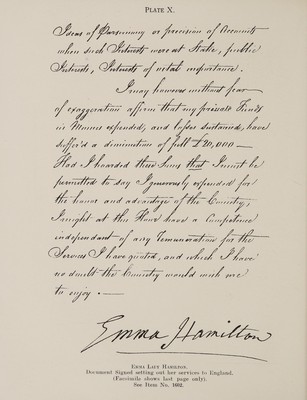 PLATE X.
Ideas of Parsimony or precision of Accounts
when such Interests were at Stake, public
Interests, Interests of vital importance.
I may however without fear
of exaggeration affirm that my private Funds
in Monies expended, and losses sustained, have
suffer'd a diminution of full £20,000 —
Had I hoarded these Sums that I must be
permitted to say I generously expended for
the honor and advantage of the Country,
I might at this Hour have a Competence
independant of any remuneration for the
Services I have quoted, and which I have
no doubt the Country would wish me
to enjoy. —
Emma Hamilton
EMMA LADY HAMILTON.
Document Signed setting out her services to England.
(Facsimile shows last page only).
See Item No. 1602.